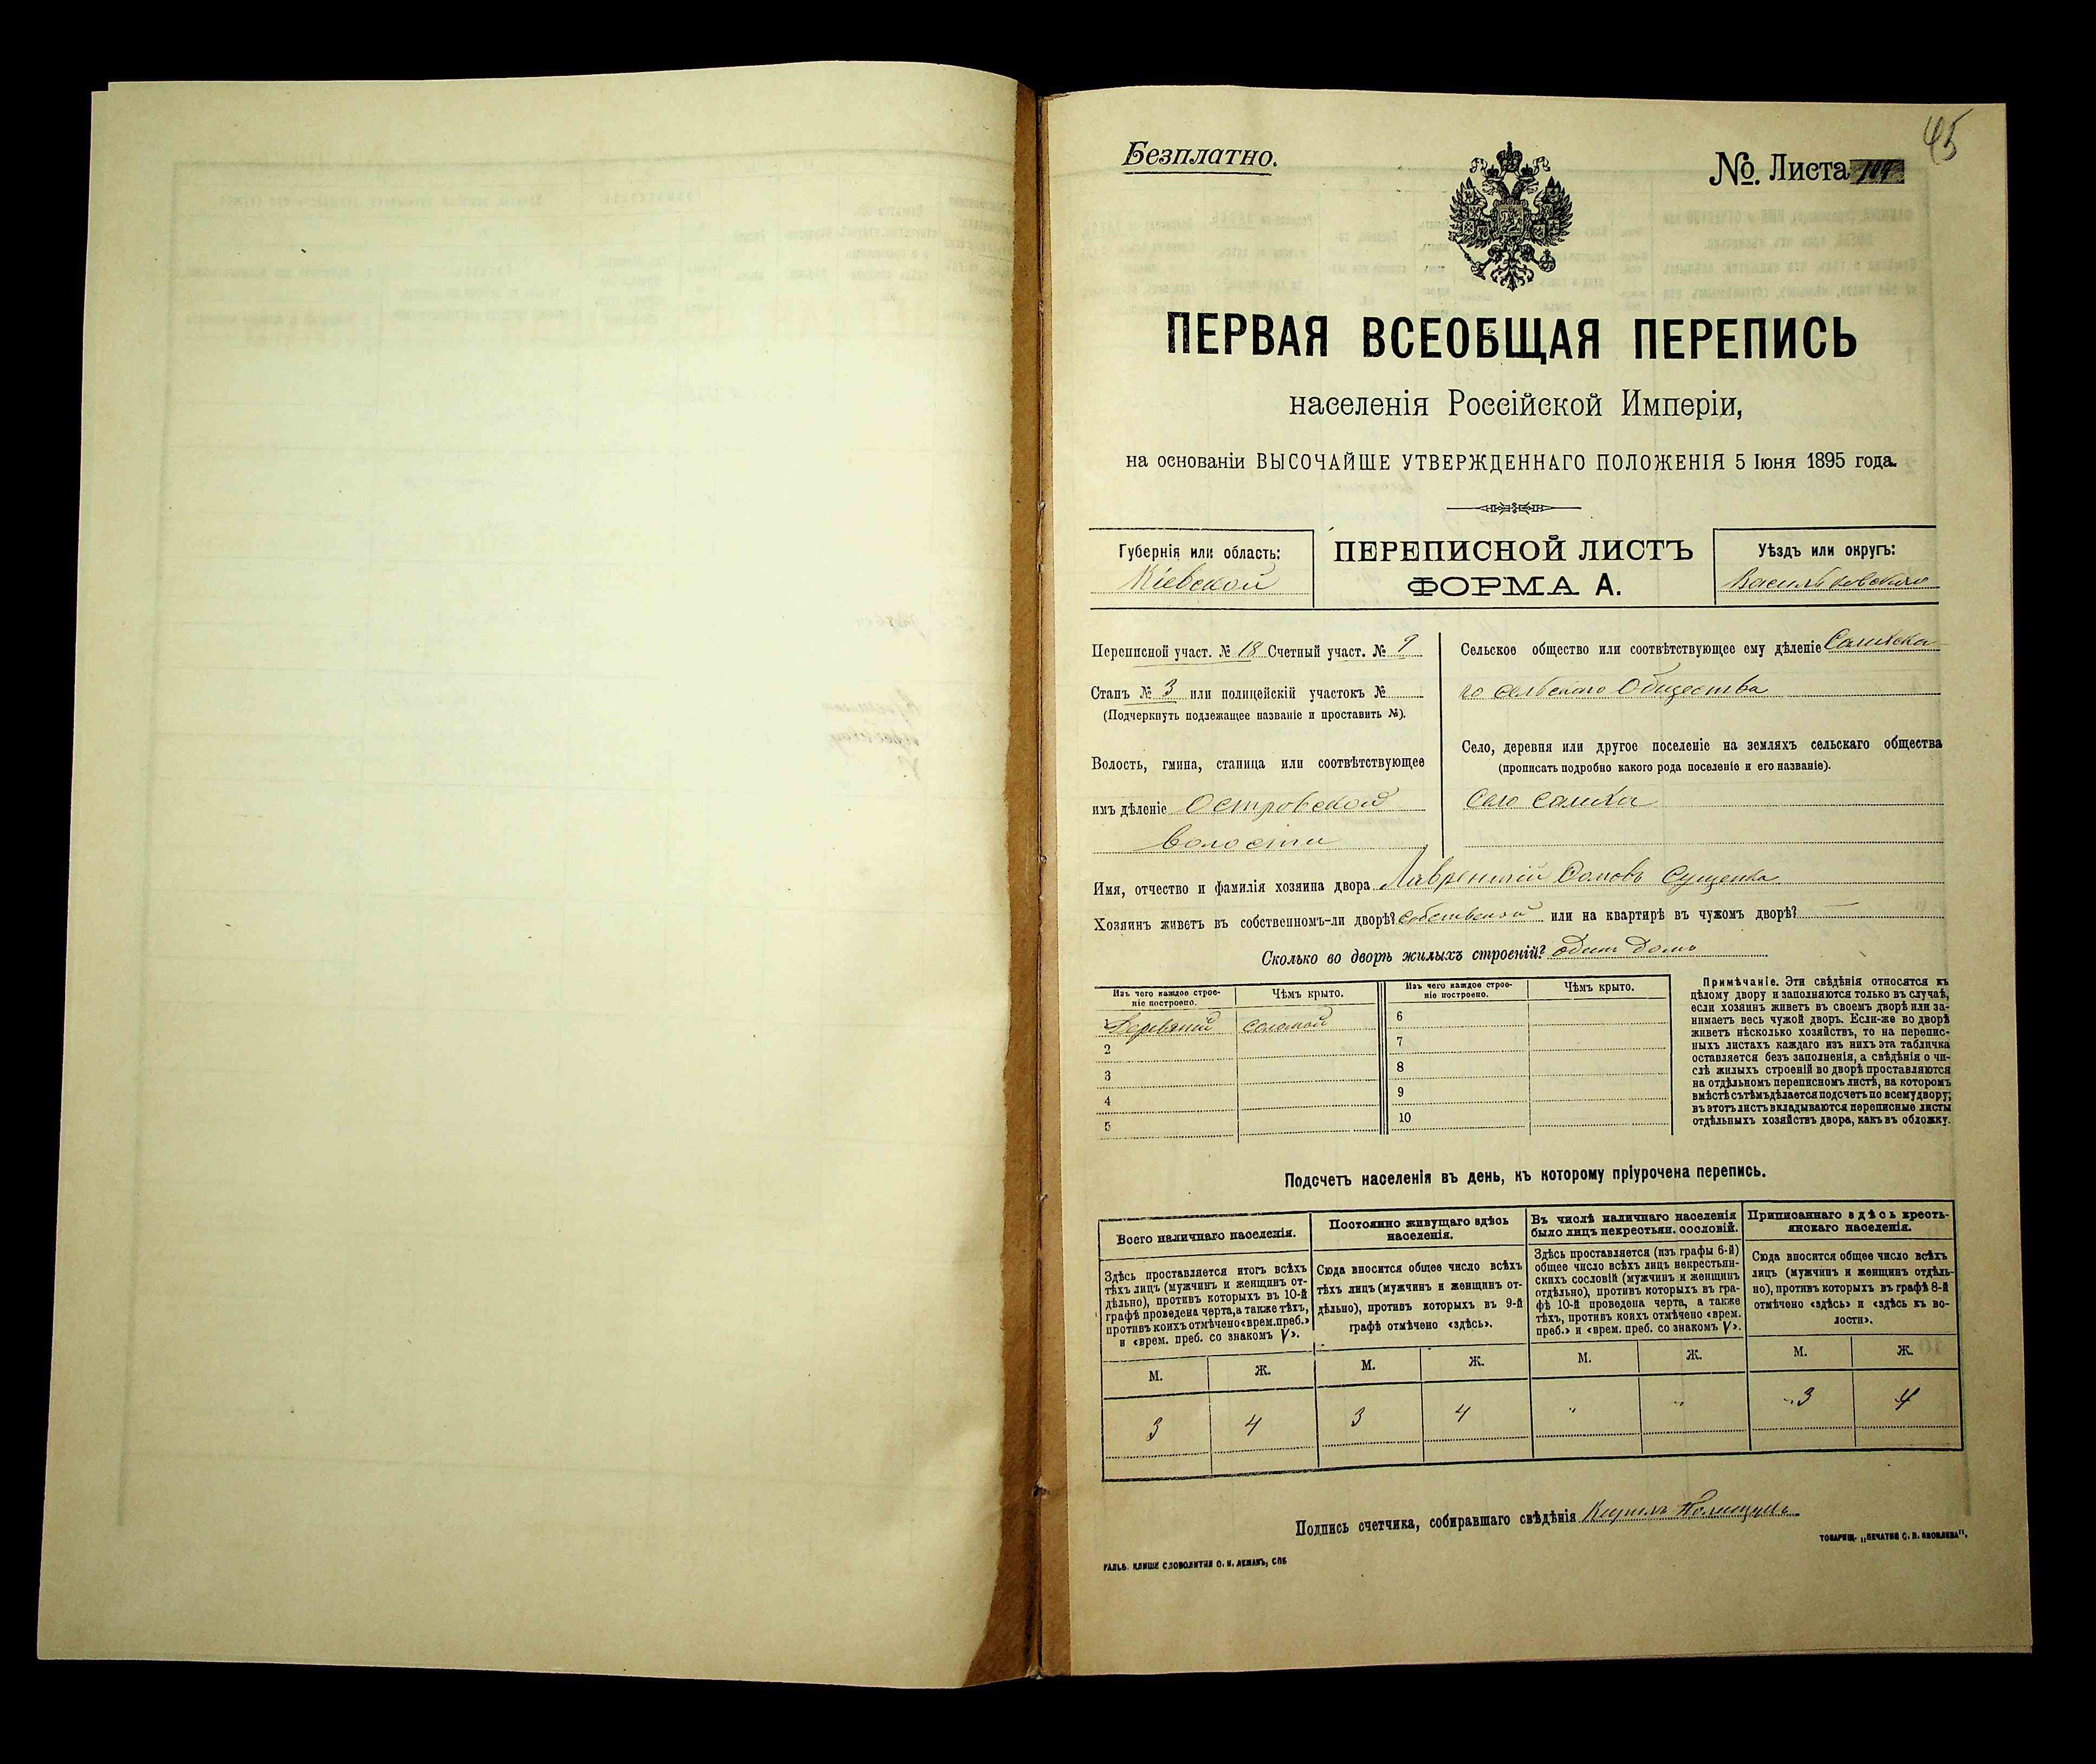 45
Безплатно.
№. Листа
ПЕРВАЯ ВСЕОБЩАЯ ПЕРЕПИСЬ
населенія Россійской Имперіи,
на основаніи ВЫСОЧАЙШЕ УТВЕРЖДЕННАГО ПОЛОЖЕНІЯ 5 Іюня 1895 года.
Губернія или область:
Кіевской
ПЕРЕПИСНОЙ ЛИСТЪ
ФОРМА А.
Уѣздъ или округъ:
Васильковскаго
Переписной участ. № 18 Счетный участ. № 9
Станъ № 3 или полицейскій участокъ №
(Подчеркнуть подлежащее названіе и проставить №).
Волость, гмина, станица или соотвѣтствующее
имъ дѣленіе Островской
волости
Сельское общество или соотвѣтствующее ему дѣленіе
го сельского Общества
Село, деревня или другое поселеніе на земляхъ сельскаго общества
(прописать подробно какого рода поселеніе и его названіе).
Село
Имя, отчество и фамилія хозяина двора Лаврентій Сущенко
Хозяинъ живетъ въ собственномъ-ли дворѣ? собственой или на квартирѣ въ чужомъ дворѣ? —
Сколько во дворѣ жилыхъ строеній? один домъ
Изъ чего каждое строе-
ніе построено.
Чѣмъ крыто.
Изъ чего каждое строе-
ніе построено.
Чѣмъ крыто.
1 Деревяний соломой
2
3
4
5
6
7
8
9
10
Примѣчаніе. Эти свѣдѣнія относятся къ
цѣлому двору и заполняются только въ случаѣ,
если хозяинъ живетъ въ своемъ дворѣ или за-
нимаетъ весь чужой дворъ. Если-же во дворѣ
живетъ нѣсколько хозяйствъ, то на перепис-
ныхъ листахъ каждаго изъ нихъ эта табличка
оставляется безъ заполненія, а свѣдѣнія о чи-
слѣ жилыхъ строеній во дворѣ проставляются
на отдѣльномъ переписномъ листѣ, на которомъ
вмѣстѣ съ тѣмъ дѣлается подсчетъ по всему двору;
въ этотъ листъ вкладываются переписные листы
отдѣльныхъ хозяйствъ двора, какъ въ обложку.
Подсчетъ населенія въ день, къ которому пріурочена перепись.
Всего наличнаго населенія.
Здѣсь проставляется итогъ всѣхъ
тѣхъ лицъ (мужчинъ и женщинъ от-
дѣльно), противъ которыхъ въ 10-й
графѣ проведена черта, а также тѣхъ,
противъ коихъ отмѣчено «врем. преб.»
и «врем. преб. со знакомъ V».
Постоянно живущаго здѣсь
населенія.
Сюда вносится общее число всѣхъ
тѣхъ лицъ (мужчинъ и женщинъ от-
дѣльно), противъ которыхъ въ 9-й
графѣ отмѣчено «здѣсь».
Въ числѣ наличнаго населенія
было лицъ некрестьян. сословій.
Здѣсь проставляется (изъ графы 6-й)
общее число всѣхъ лицъ некрестьян-
скихъ сословій (мужчинъ и женщинъ
отдѣльно), противъ которыхъ въ гра-
фѣ 10-й проведена черта, а также
тѣхъ, противъ коихъ отмѣчено «врем.
преб.» и «врем. преб. со знакомъ V».
Приписаннаго здѣсь кресть-
янскаго населенія.
Сюда вносится общее число всѣхъ
лицъ (мужчинъ и женщинъ отдѣль-
но), противъ которыхъ въ графѣ 8-й
отмѣчено «здѣсь» и «здѣсь къ во-
лости».
М. Ж. М. Ж. М. Ж. М. Ж.
3 4 3 4 " " 3 4
Подпись счетчика, собиравшаго свѣдѣнія
ТОВАРИЩ. „ПЕЧАТНЯ С. П. ЯКОВЛЕВА".
ГАЛЬВ. КЛИШЕ СЛОВОЛИТНИ О. И. ЛЕМАНЪ, СПБ